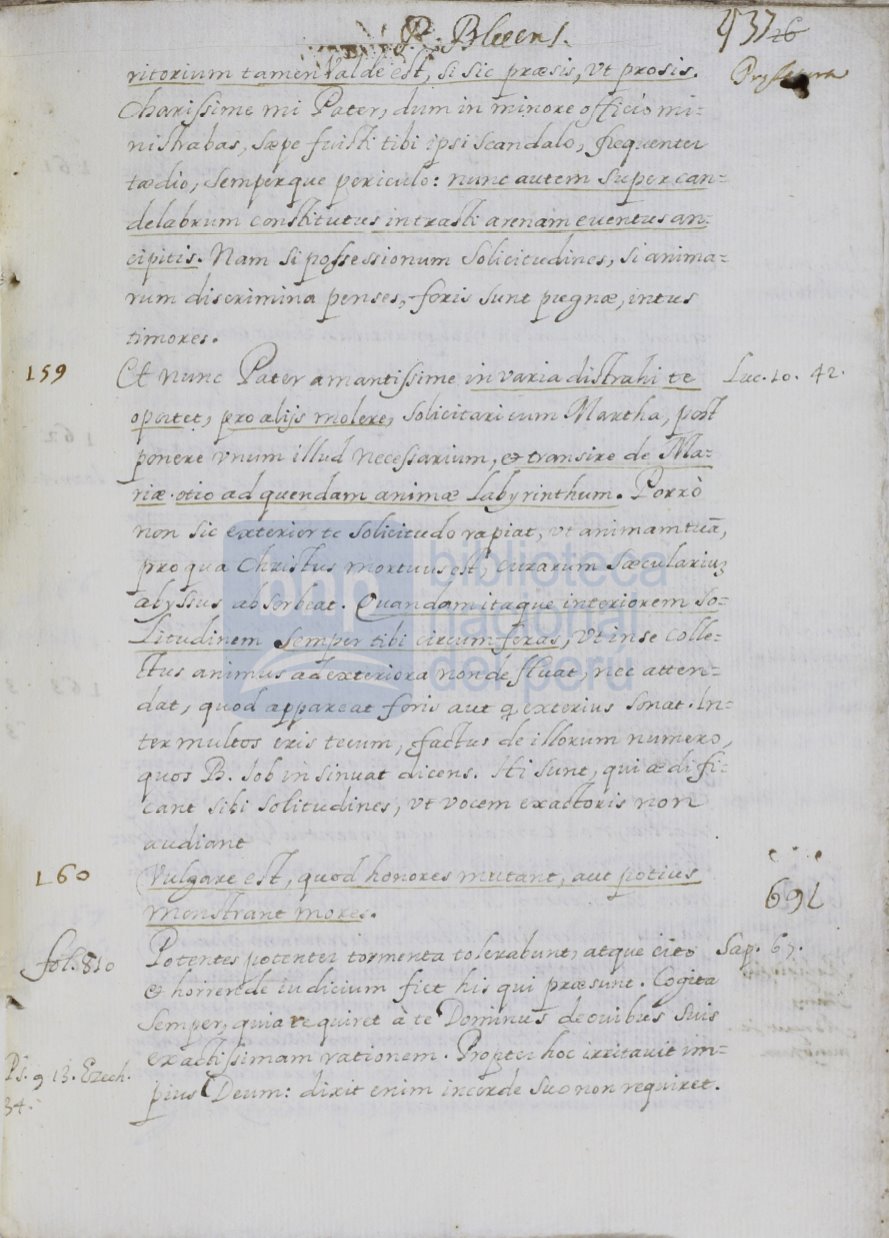 P. Blesens.
ritorium tamen valde est, si sic præsis, vt prosis.
Charissime mi Pater, dum in minore officio mi-
nistrabas, sæpe fuisti tibi ipsi scandalo, frequenter
tædio, semperque periculo: nunc autem super can-
delabrum constitutus intrasti arenam euentus an-
cipitis. Nam si possessionum solicitudines, si anima-
rum discrimina penses, foris sunt pugnæ, intus
timores.
159 Et nunc Pater amantissime in varia distrahi te Luc. 10. 42.
oportet, pro alijs molere, solicitari cum Martha, post
ponere vnum illud necessarium, & transire de Ma-
riæ otio ad quendam animæ labyrinthum. Porrò
non sic exterior te solicitudo rapiat, vt animam tuā,
pro qua Christus mortuus est, curarum sæculariuz
abyssus absorbeat. Quandam itaque interiorem so-
litudinem semper tibi circumferas, vt in se colle-
ctus animus ad exteriora non defluat, nec atten-
dat, quod appareat foris aut q exterius sonat. In-
ter multos eris tecum, factus de illorum numero,
quos B. Iob insinuat dicens. Hi sunt, qui ædifi-
cant sibi solitudines, vt vocem exactoris non
audiant
160 Vulgare est, quod honores mutant, aut potius
monstrant mores.
691
fol. 810 Potentes potenter tormenta tolerabunt, atque cito Sap. 6 7.
& horrende iudicium fiet his qui præsunt. Cogita
semper, quia requiret à te Dominus de ouibus suis
exactissimam rationem. Propter hoc irritauit im-
Ps. 9 13. Ezech. 34. pius Deum: dixit enim in corde suo non requiret.
bnp biblioteca
nacional
del perú